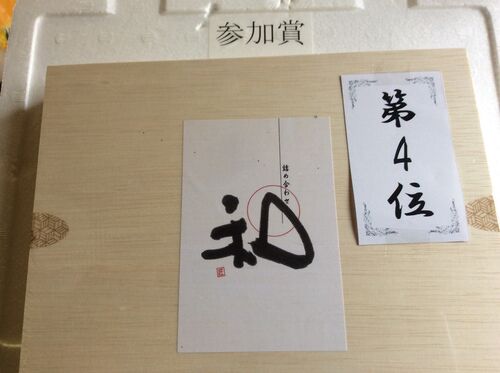 参加賞
第4位
詰め合わせ
和